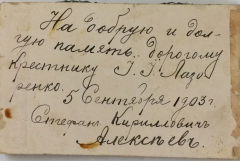 На добрую и дол-
гую память. дорогому
крестнику І. І. Лазо
ренко.
5 Сентября 1903 г.
Стефанъ Кирилловичъ
Алексѣевъ.